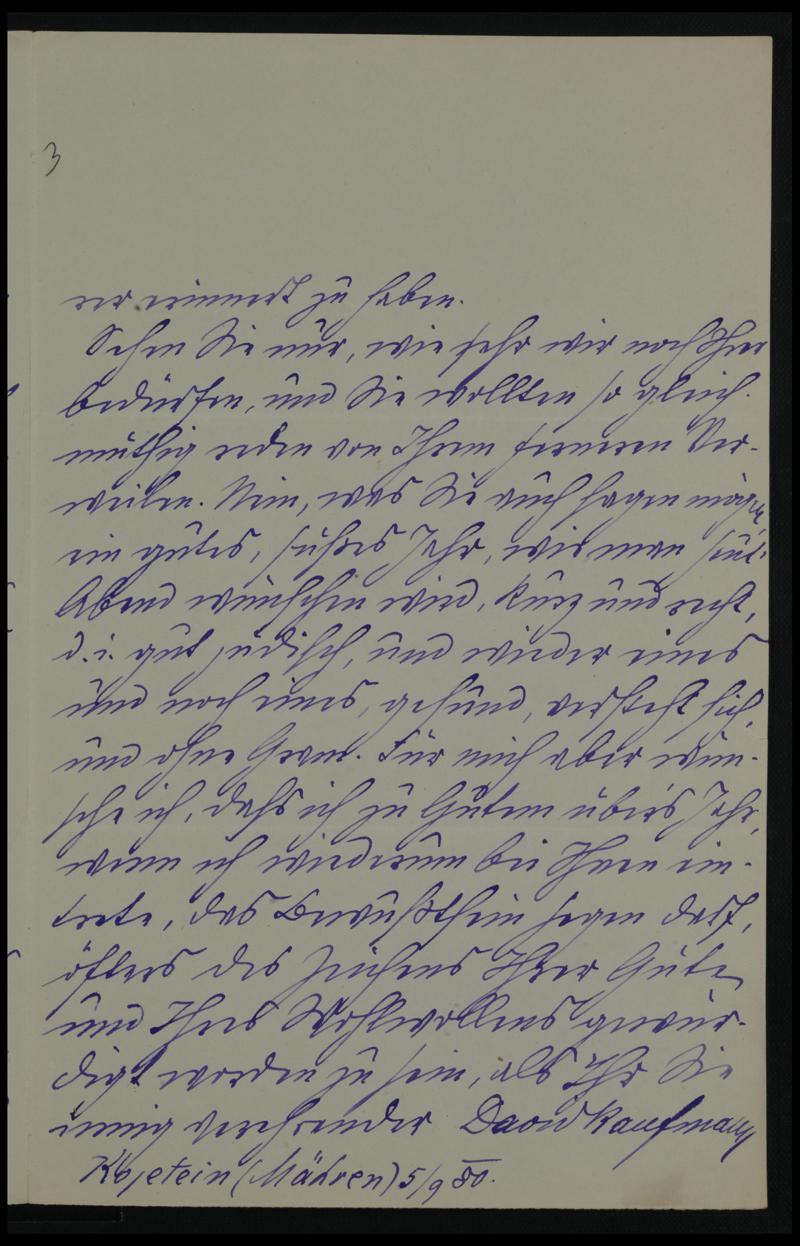 3
rer erinnert zu haben.
Sehen Sie nur, wie sehr wir noch Ihrer
bedürfen, und Sie wollten so gleich-
müthig reden von Ihrem ferneren Ver-
weilen. Nein, was Sie auch sagen mögen,
ein gutes, süßes Jahr, wie man heut
Abend wünschen wird, kurz und recht,
d. i. gut jüdisch, und wieder eines
und noch eines, gesund, versteht sich,
und ohne Gram. Für mich aber wün-
sche ich, daß ich zu Gutem übers Jahr,
wenn ich wiederum bei Ihnen ein-
trete, das Bewußtsein hegen darf,
öfters des Zeichens Ihrer Güte
und Ihres Wohlwollens gewür-
digt worden zu sein, als Ihr Sie
innig verehrender David Kaufmann
Kojetein (Mähren) 5/9 80.